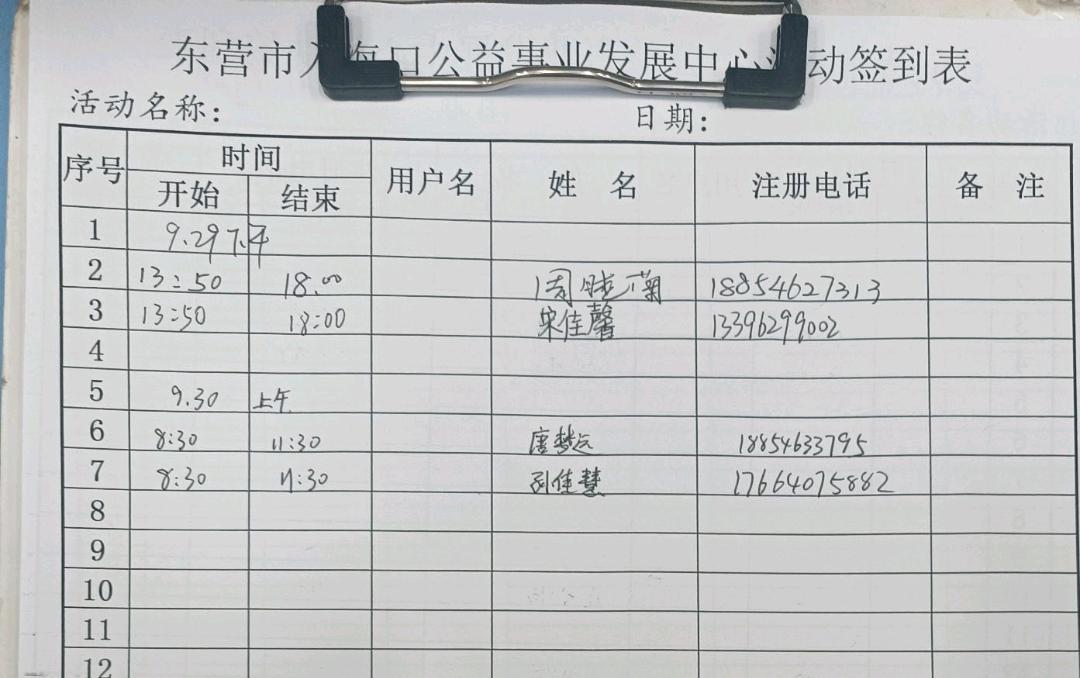 东营市入海口公益事业发展中心活动签到表
活动名称: 日期:
序号 时间 用户名 姓 名 注册电话 备 注
开始 结束
1 9.29下午
2 13:50 18:00 周 菊 18854627313
3 13:50 18:00 宋佳馨 13396299002
4
5 9.30 上午
6 8:30 11:30 唐梦云 18854633795
7 8:30 11:30 孙佳慧 17664075882
8
9
10
11
12